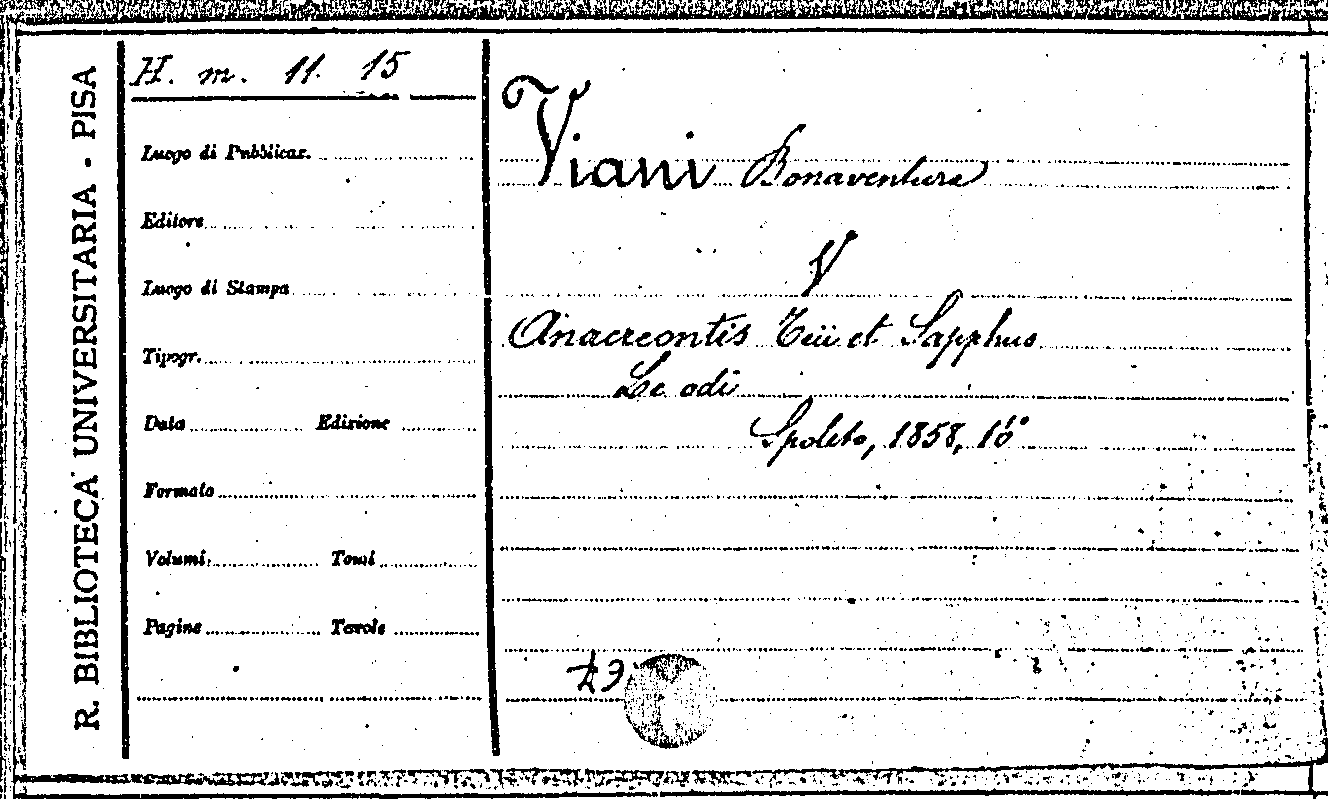 R. BIBLIOTECA UNIVERSITARIA - PISA
H. m. 11. 15
Luogo di Pubblicaz.
Editore
Luogo di Stampa
Tipogr.
Data Edizione
Formato
Volumi. Tomi
Pagine Tavole
Viani Bonaventura
V
Anacreontis Teii et Sapphus
Le odi
Spoleto, 1858, 16°